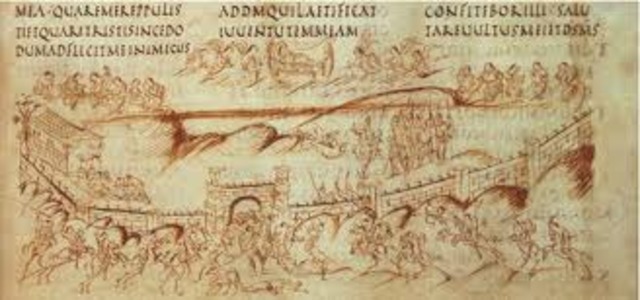 MEA·QUAREMEREPPULIS
TIETQUARETRISTISINCEDO
DUMADFLIGITMEINIMICUS
ADDMQUILAETIFICAT
IUUENTUTEMMEAM
CONFITEBORILLI SALU
TAREUULTUSMEIETDSMS